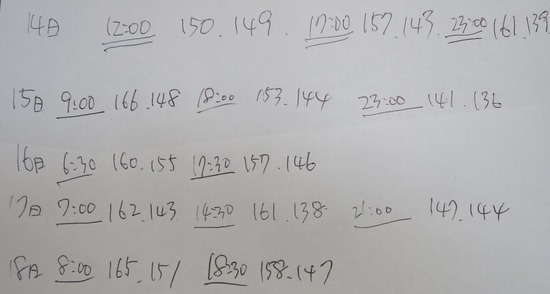 14日 12:00 150.149. 17:00 157.143. 23:00 161.139
15日 9:00 166.148 18:00 153.144 23:00 141.136
16日 6:30 160.155 17:30 157.146
17日 7:00 162.143 14:30 161.138. 21:00 147.144
18日 8:00 165.151 18:30 158.147